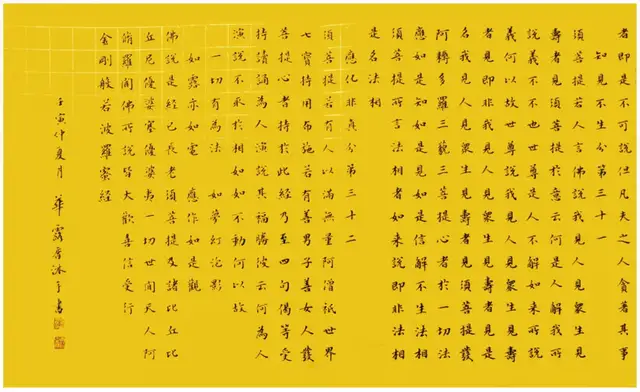 者即是不可說但凡夫之人貪著其事
知見不生分第三十一
須菩提若人言佛說我見人見衆生見
壽者見須菩提於意云何是人解我所
說義不不也世尊是人不解如來所說
義何以故世尊說我見人見衆生見壽
者見即非我見人見衆生見壽者見是
名我見人見衆生見壽者見須菩提發
阿耨多羅三藐三菩提心者於一切法
應如是知如是見如是信解不生法相
須菩提所言法相者如來說即非法相
是名法相
應化非真分第三十二
須菩提若有人以滿無量阿僧祇世界
七寶持用布施若有善男子善女人發
菩提心者持於此經乃至四句偈等受
持讀誦為人演說其福勝彼云何為人
演說不取於相如如不動何以故
一切有為法 如夢幻泡影
如露亦如電 應作如是觀
佛說是經已長老須菩提及諸比丘比
丘尼優婆塞優婆夷一切世間天人阿
脩羅聞佛所說皆大歡喜信受行
金剛般若波羅蜜經
壬寅仲夏月 華露居沐手書